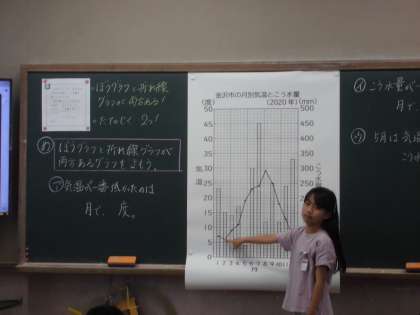 ぼうグラフと折れ線
グラフが両方ある!
たてのじく 2つ!
め ぼうグラフと折れ線グラフが
両方あるグラフをよもう。
ア 気温が一番低かったのは
月で、 度。
金沢市の月別気温とこう水量
(度) (2020年) (mm)
50 500
45 450
40 400
35 350
30 300
25 250
20
15
10
5
0
気温
こう水
1 2 3 4 5 6 7 8 9 10 11
月
イ こう水量が一
月で
ウ 5月は気温
こう水